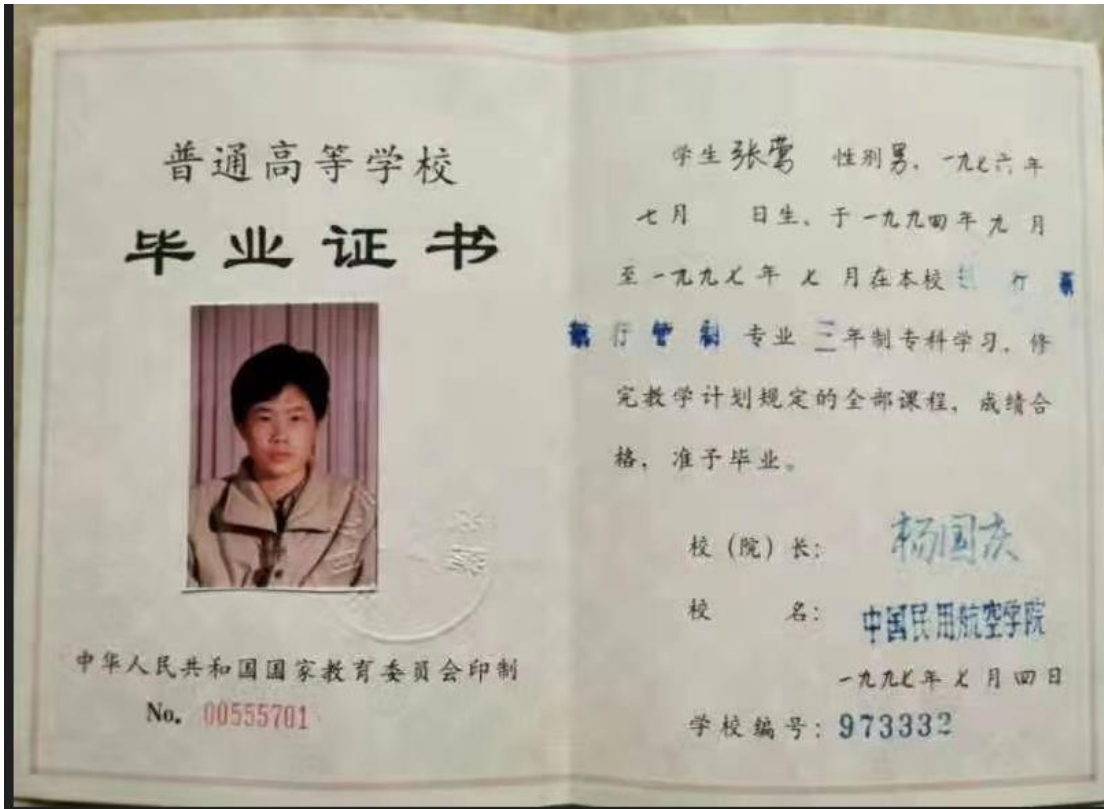 普通高等学校
毕业证书
中华人民共和国国家教育委员会印制
No. 00555701
学生张莺 性别男，一九七六年
七月 日生、于一九九四年九月
至一九九七年七月在本校 行
行管制专业三年制专科学习，修
完教学计划规定的全部课程，成绩合
格，准予毕业。
校（院）长： 杨国庆
校 名： 中国民用航空学院
一九九七年七月四日
学校编号：973332